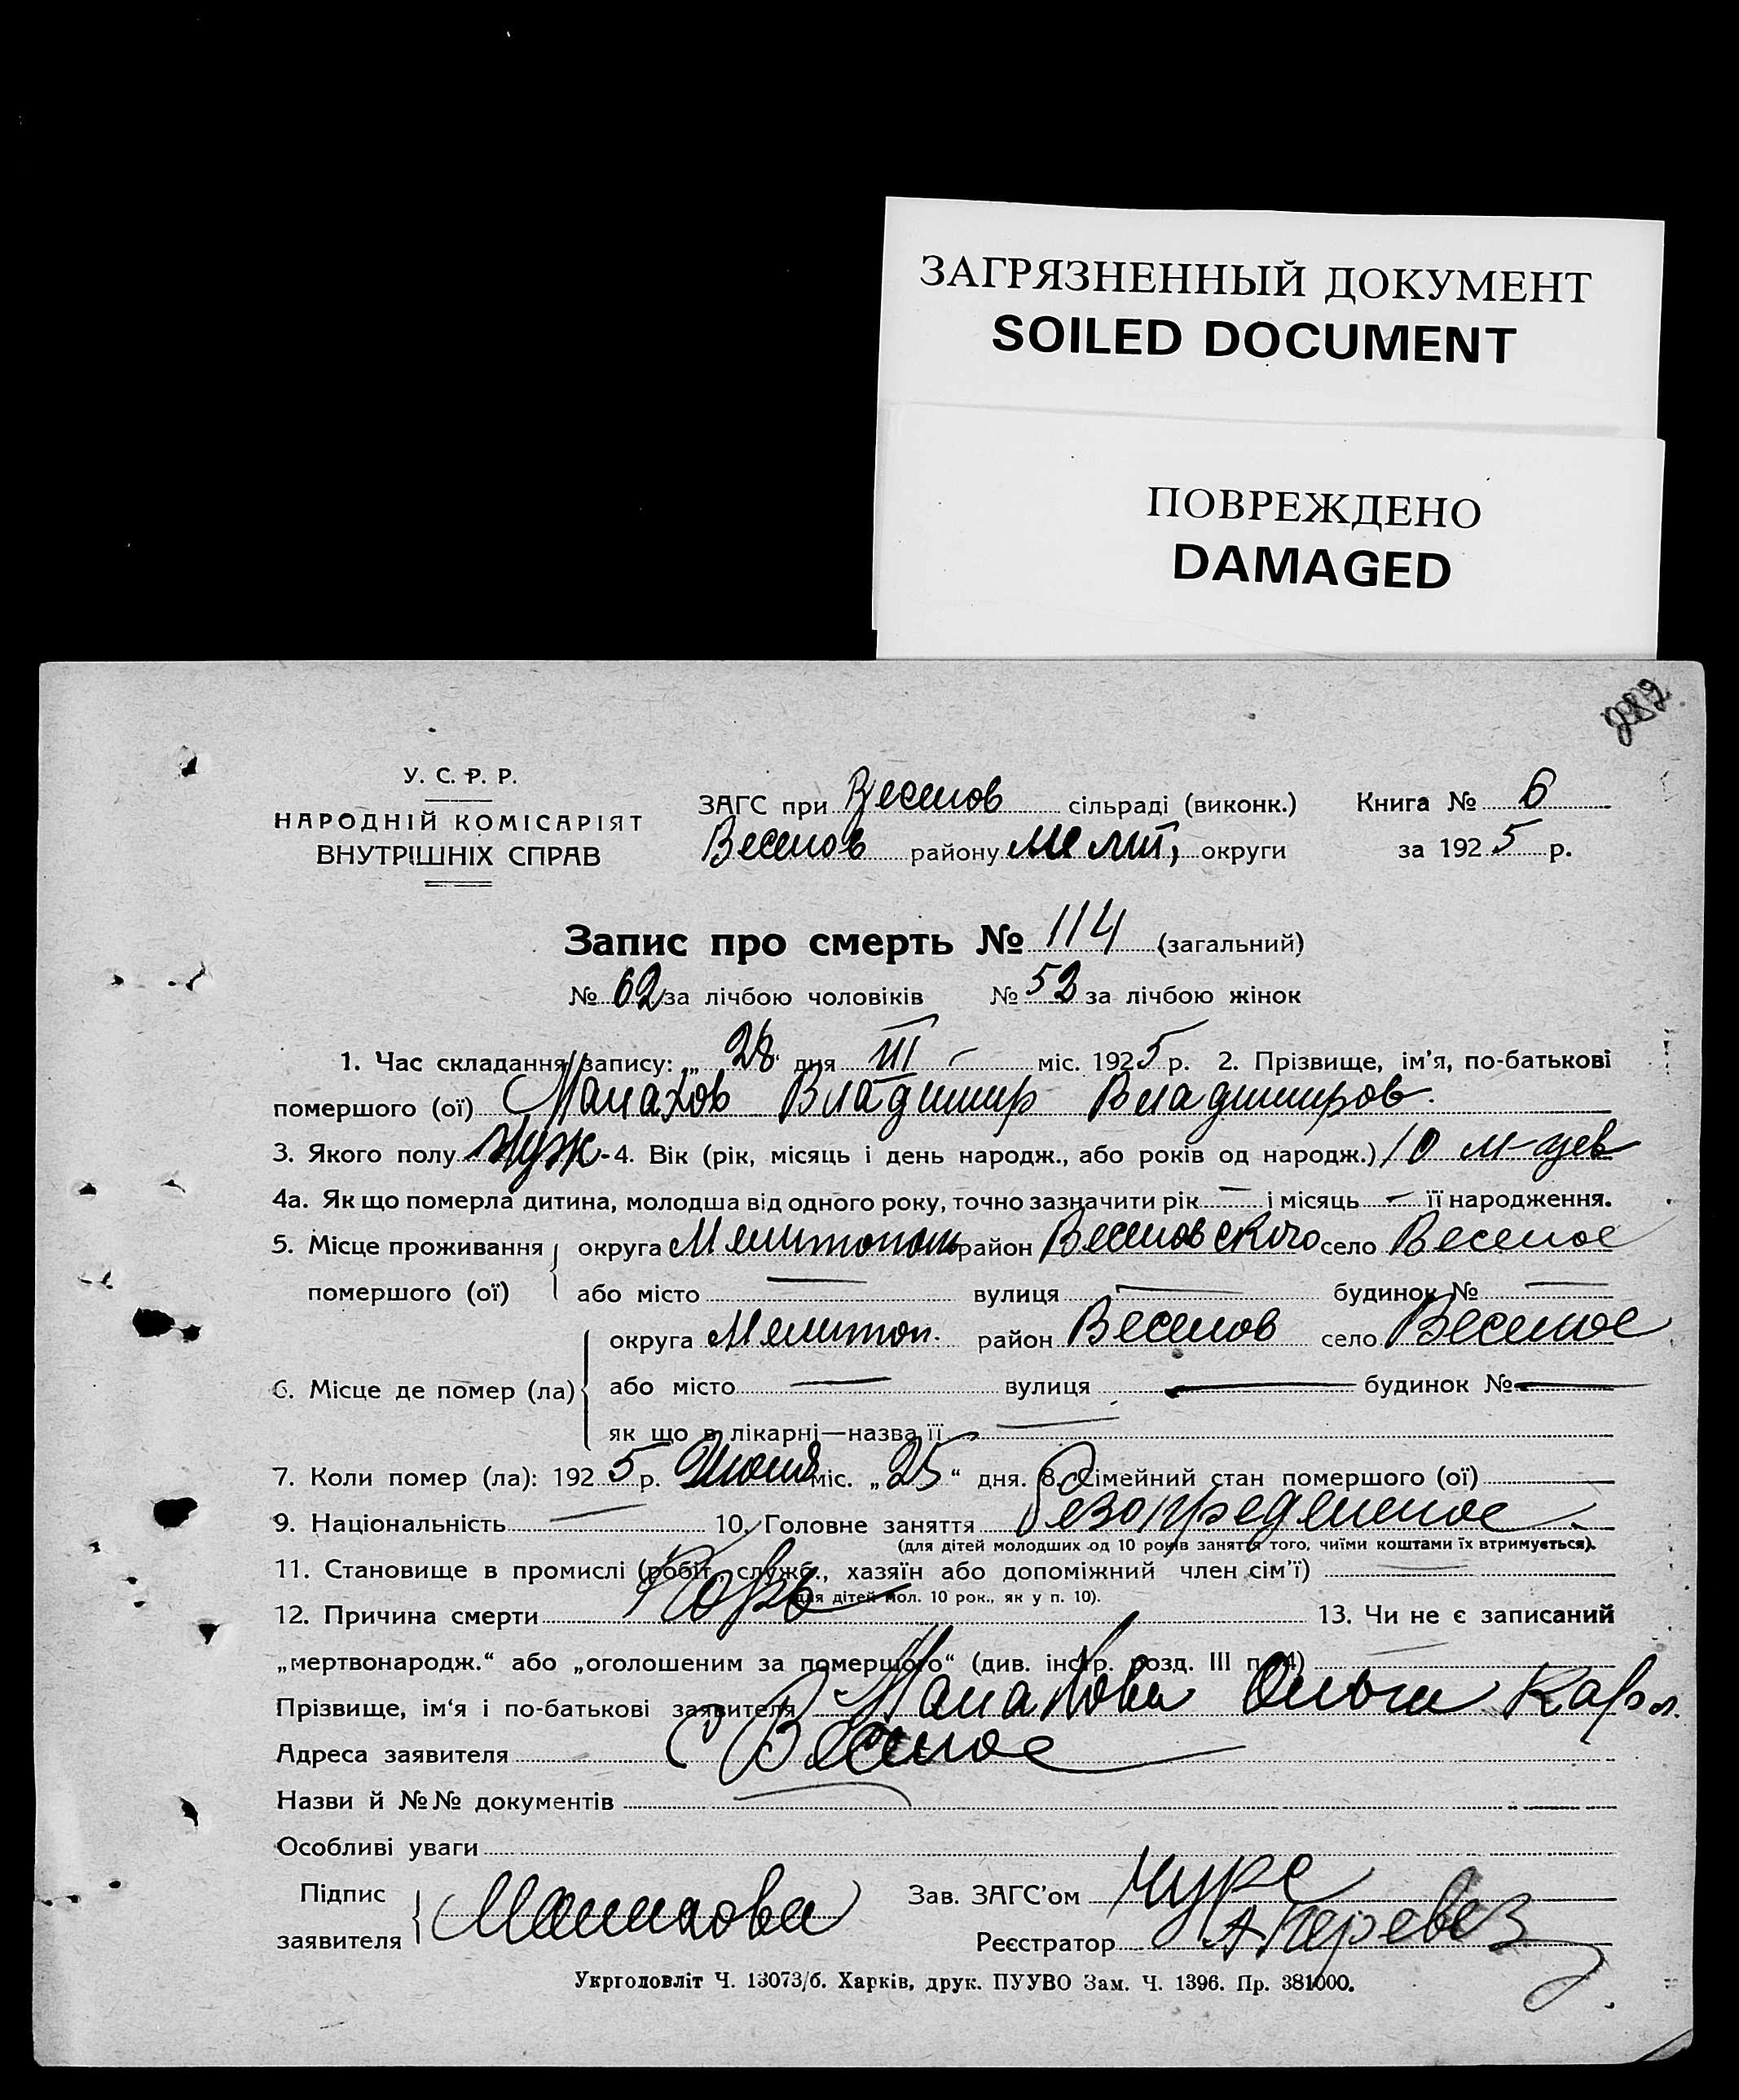 ЗАГРЯЗНЕННЫЙ ДОКУМЕНТ
SOILED DOCUMENT
ПОВРЕЖДЕНО
DAMAGED
У. С. Р. Р.
НАРОДНІЙ КОМІСАРІЯТ
ВНУТРІШНІХ СПРАВ
ЗАГС при Веселов сільраді (виконк.) Книга № 6
Веселов району Мелит, округи за 1925 р.
Запис про смерть № 114 (загальний)
№ 62 за лічбою чоловіків № 52 за лічбою жінок
1. Час складання запису: „ 28 “ дня міс. 1925 р. 2. Прізвище, ім'я, по-батькові
помершого (ої) Малахов Владимир Владимиров.
3. Якого полу Муж - 4. Вік (рік, місяць і день народж., або років од народж.) 10 м-цев
4а. Як що померла дитина, молодша від одного року, точно зазначити рік — і місяць — її народження.
5. Місце проживання округа Мелитополь район Веселовского село Веселое
помершого (ої) або місто — вулиця — будинок № —
округа Мелитоп. район Веселов село Веселое
6. Місце де помер (ла) або місто — вулиця — будинок № —
як що в лікарні—назва її —
7. Коли помер (ла): 1925 р. міс. „ 25 “ дня. 8. Сімейний стан помершого (ої)
9. Національність — 10. Головне заняття безопределеное
(для дітей молодших од 10 років заняття того, чиїми коштами їх втримується).
11. Становище в промислі (робіт., служб., хазяїн або допоміжний член сім'ї) —
(для дітей мол. 10 рок., як у п. 10).
12. Причина смерти Корь 13. Чи не є записаний
„мертвонародж.“ або „оголошеним за помершого“ (див. інстр. розд. III п. 4) —
Прізвище, ім'я і по-батькові заявителя Малахова Ольга Карл.
Адреса заявителя С Веселое
Назви й №№ документів —
Особливі уваги
Підпис
заявителя Малахова
Зав. ЗАГС'ом
Реєстратор
Укрголовліт Ч. 13073/б. Харків, друк. ПУУВО Зам. Ч. 1396. Пр. 381000.